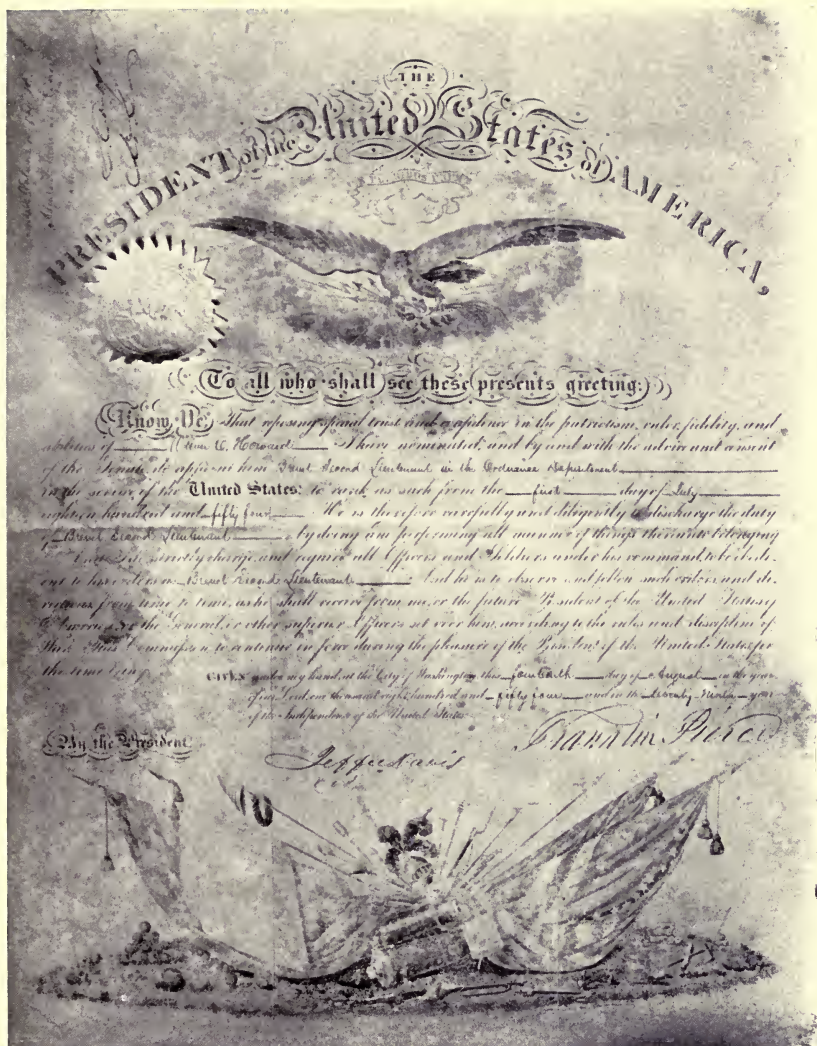 THE
PRESIDENT of the United States of AMERICA,
To all who shall see these presents greeting:
Know Ye That reposing special trust and confidence in the patriotism, valor, fidelity, and
abilities of O. Howard I have nominated, and by and with the advice and consent
of the Senate do appoint him Brevet Second Lieutenant in the Ordnance Department
in the service of the United States: to rank as such from the first day of July
eighteen hundred and fifty four He is therefore carefully and diligently to discharge the duty
of Brevet Second Lieutenant by doing and performing all manner of things thereunto belonging
strictly charge, and require all Officers and Soldiers under his command, to be obedi-
ent to his orders as Brevet Second Lieutenant And he is to observe and follow such orders, and di-
rections from time to time, as he shall receive from me, or the future President of the United States of
America, or the General, or other superior Officers set over him, according to the rules and discipline of
War. This Commission to continue in force during the pleasure of the President of the United States, for
the time being.
GIVEN under my hand, at the City of Washington this fourteenth day of August in the year
of our Lord, one thousand eight hundred and fifty four and in the seventy ninth year
of the Independence of the United States.
By the President Franklin Pierce
Jeffn Davis